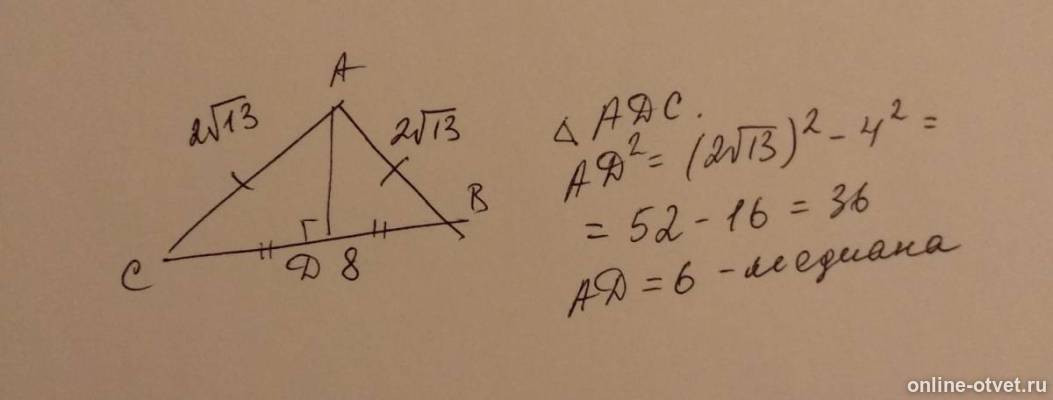 A
2√13
2√13
B
C
D 8
△ ADC.
AD² = (2√13)² - 4² =
= 52 - 16 = 36
AD = 6 - медиана
online-otvet.ru